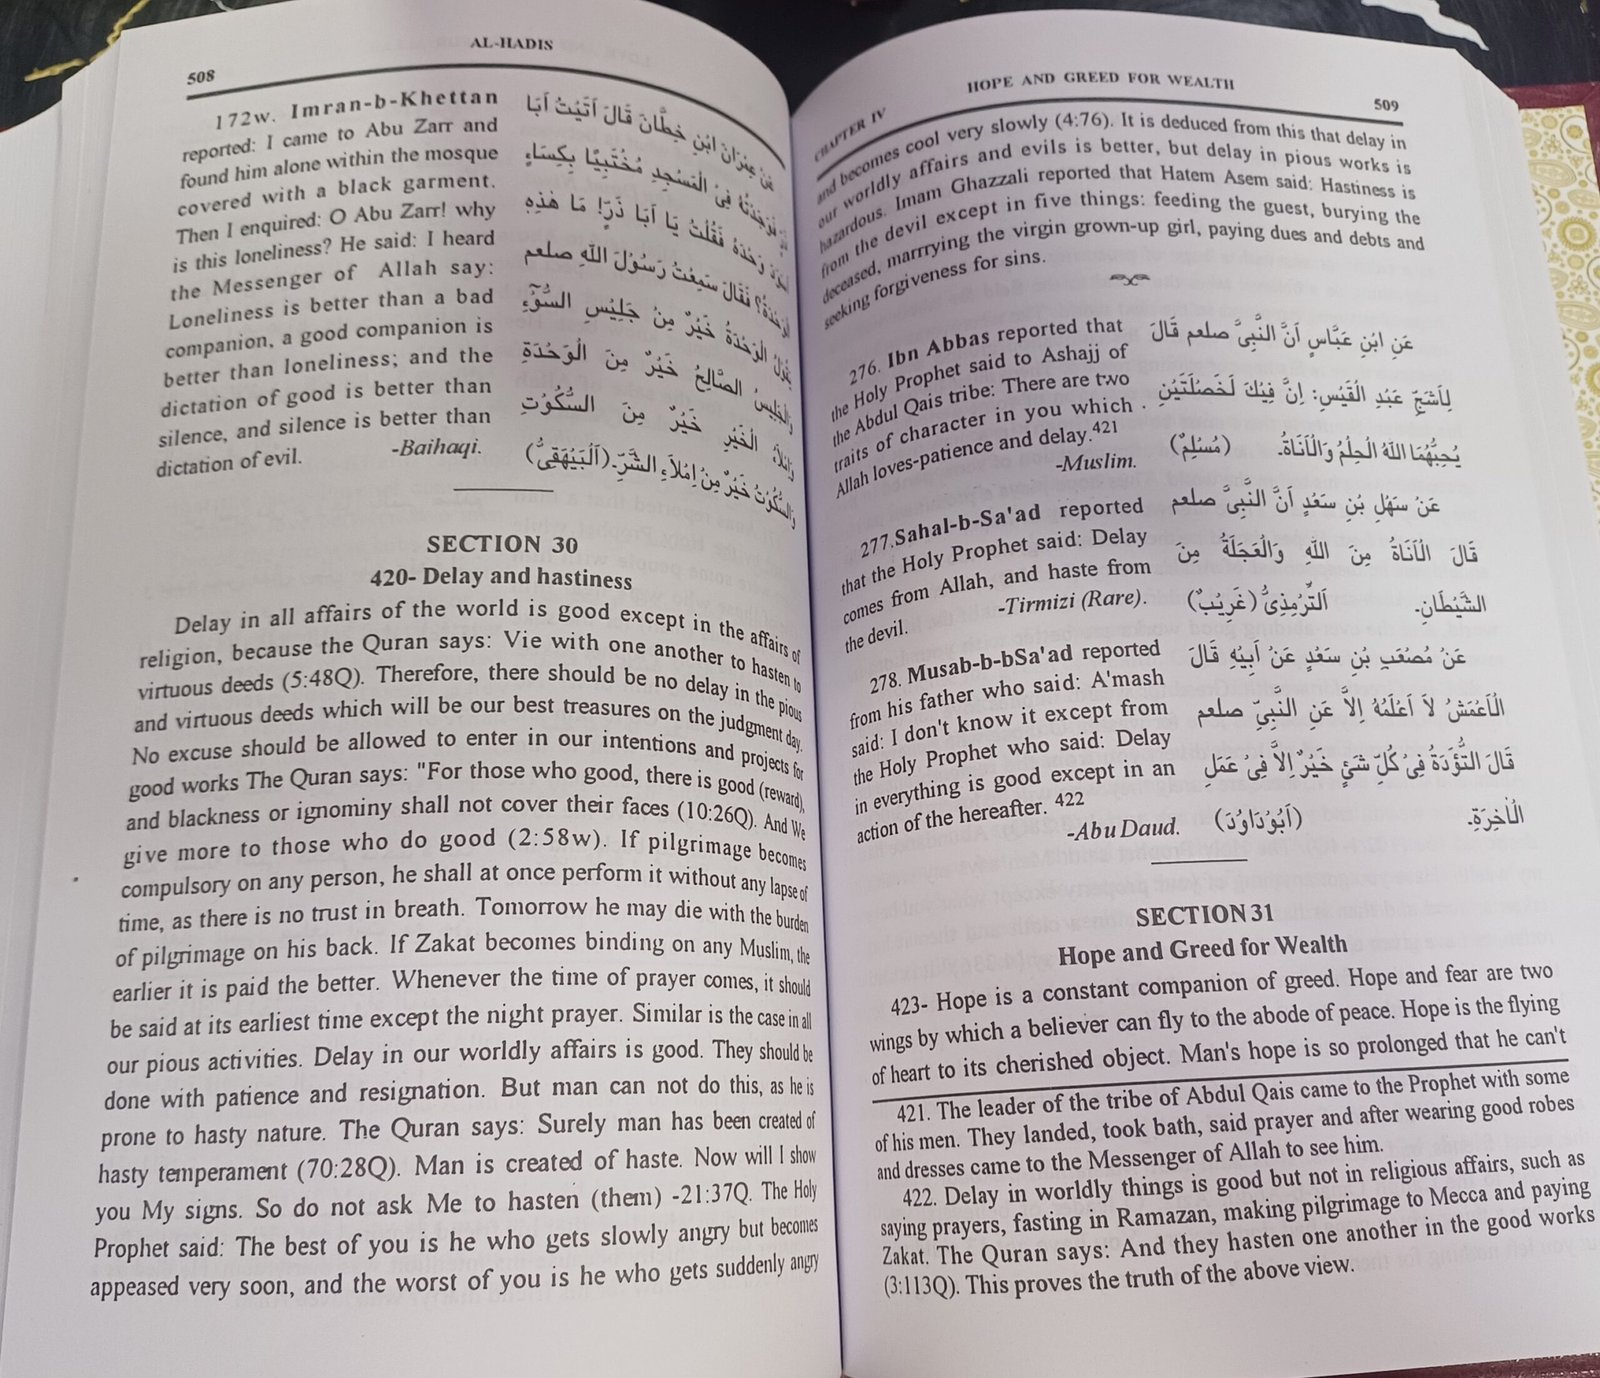 508
AL-HADIS
172w. Imran-b-Khettan
reported: I came to Abu Zarr and
found him alone within the mosque
covered with a black garment.
Then I enquired: O Abu Zarr! why
is this loneliness? He said: I heard
the Messenger of Allah say:
Loneliness is better than a bad
companion, a good companion is
better than loneliness; and the
dictation of good is better than
silence, and silence is better than
dictation of evil. -Baihaqi.
عَنْ عِمْرَانَ ابْنِ خِطَّانَ قَالَ اَتَيْتُ اَبَا
فَوَجَدْتُهُ فِىْ الْمَسْجِدِ مُخْتَبِيًا بِكِسَاءٍ
وَحْدَهُ فَقُلْتُ يَا اَبَا ذَرٍّ! مَا هٰذِهِ
الْوَحْدَةُ؟ فَقَالَ سَمِعْتُ رَسُوْلَ اللّٰهِ صلعم
يَقُوْلُ الْوَحْدَةُ خَيْرٌ مِنْ جَلِيْسِ السُّوْٓءِ
وَالْجَلِيْسُ الصَّالِحُ خَيْرٌ مِنَ الْوَحْدَةِ
وَاِمْلاَءُ الْخَيْرِ خَيْرٌ مِنَ السُّكُوْتِ
وَالسُّكُوْتُ خَيْرٌ مِنْ اِمْلاَءِ الشَّرِّ۔(اَلْبَيْهَقِىُّ)
SECTION 30
420- Delay and hastiness
Delay in all affairs of the world is good except in the affairs of
religion, because the Quran says: Vie with one another to hasten to
virtuous deeds (5:48Q). Therefore, there should be no delay in the pious
and virtuous deeds which will be our best treasures on the judgment day.
No excuse should be allowed to enter in our intentions and projects for
good works The Quran says: "For those who good, there is good (reward),
and blackness or ignominy shall not cover their faces (10:26Q). And We
give more to those who do good (2:58w). If pilgrimage becomes
compulsory on any person, he shall at once perform it without any lapse of
time, as there is no trust in breath. Tomorrow he may die with the burden
of pilgrimage on his back. If Zakat becomes binding on any Muslim, the
earlier it is paid the better. Whenever the time of prayer comes, it should
be said at its earliest time except the night prayer. Similar is the case in all
our pious activities. Delay in our worldly affairs is good. They should be
done with patience and resignation. But man can not do this, as he is
prone to hasty nature. The Quran says: Surely man has been created of
hasty temperament (70:28Q). Man is created of haste. Now will I show
you My signs. So do not ask Me to hasten (them) -21:37Q. The Holy
Prophet said: The best of you is he who gets slowly angry but becomes
appeased very soon, and the worst of you is he who gets suddenly angry
CHAPTER IV
HOPE AND GREED FOR WEALTH
509
and becomes cool very slowly (4:76). It is deduced from this that delay in
our worldly affairs and evils is better, but delay in pious works is
hazardous. Imam Ghazzali reported that Hatem Asem said: Hastiness is
from the devil except in five things: feeding the guest, burying the
deceased, marrrying the virgin grown-up girl, paying dues and debts and
seeking forgiveness for sins.
276. Ibn Abbas reported that
the Holy Prophet said to Ashajj of
the Abdul Qais tribe: There are two
traits of character in you which
Allah loves-patience and delay.421
-Muslim.
عَنِ ابْنِ عَبَّاسٍ اَنَّ النَّبِىَّ صلعم قَالَ
لِاَشَجِّ عَبْدِ الْقَيْسِ: اِنَّ فِيْكَ لَخَصْلَتَيْنِ
يُحِبُّهُمَا اللّٰهُ الْحِلْمُ وَالْاَنَاةُ۔ (مُسْلِمٌ)
277.Sahal-b-Sa'ad reported
that the Holy Prophet said: Delay
comes from Allah, and haste from
the devil. -Tirmizi (Rare).
عَنْ سَهْلِ بْنِ سَعْدٍ اَنَّ النَّبِىَّ صلعم
قَالَ الْاَنَاةُ مِنَ اللّٰهِ وَالْعَجَلَةُ مِنَ
الشَّيْطَانِ۔ اَلتِّرْمِذِىُّ (غَرِيْبٌ)
278. Musab-b-bSa'ad reported
from his father who said: A'mash
said: I don't know it except from
the Holy Prophet who said: Delay
in everything is good except in an
action of the hereafter. 422
-Abu Daud.
عَنْ مُصْعَبِ بْنِ سَعْدٍ عَنْ اَبِيْهِ قَالَ
الْاَعْمَشُ لاَ اَعْلَمُهُ اِلاَّ عَنِ النَّبِىِّ صلعم
قَالَ التُّؤَدَةُ فِىْ كُلِّ شَىْءٍ خَيْرٌ اِلاَّ فِىْ عَمَلِ
الْاٰخِرَةِ۔ (اَبُوْدَاوُدَ)
SECTION 31
Hope and Greed for Wealth
423- Hope is a constant companion of greed. Hope and fear are two
wings by which a believer can fly to the abode of peace. Hope is the flying
of heart to its cherished object. Man's hope is so prolonged that he can't
421. The leader of the tribe of Abdul Qais came to the Prophet with some
of his men. They landed, took bath, said prayer and after wearing good robes
and dresses came to the Messenger of Allah to see him.
422. Delay in worldly things is good but not in religious affairs, such as
saying prayers, fasting in Ramazan, making pilgrimage to Mecca and paying
Zakat. The Quran says: And they hasten one another in the good works
(3:113Q). This proves the truth of the above view.